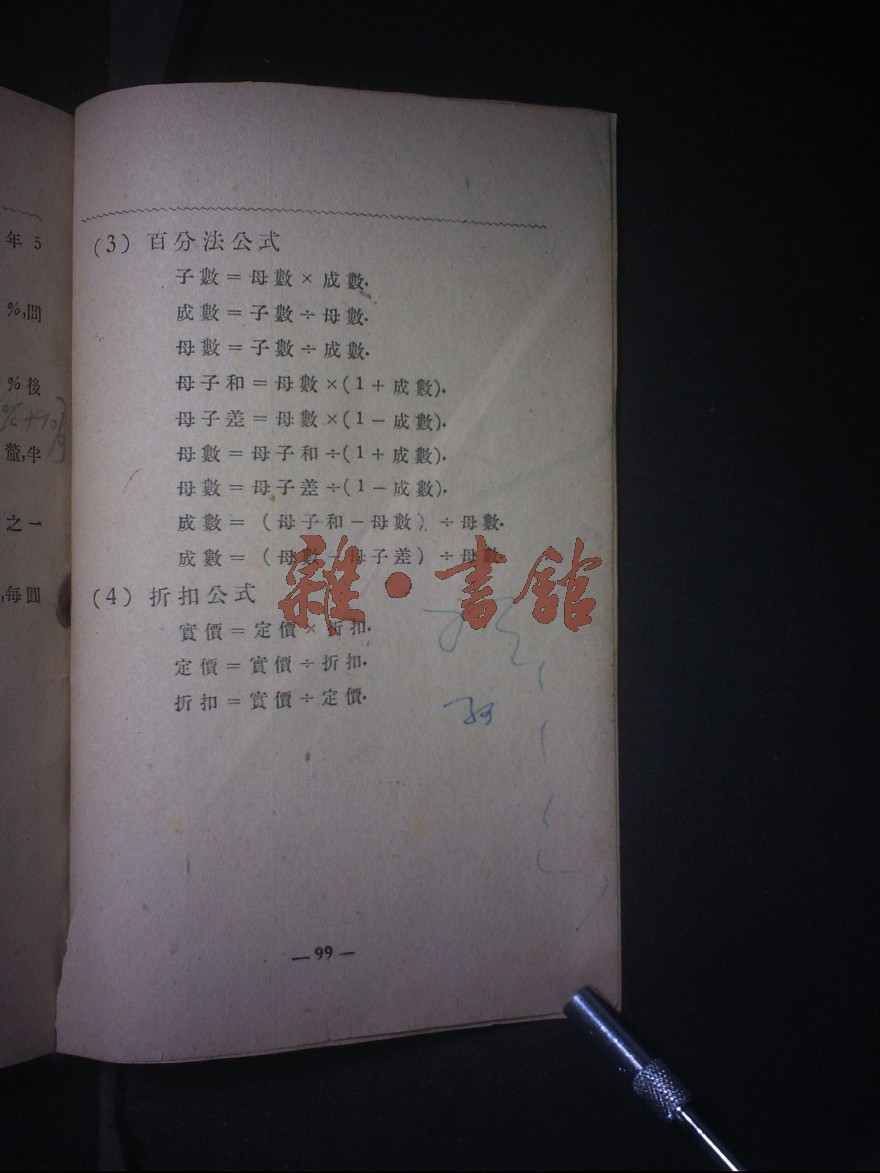 年 5
%,問
%後
董,半
之一
,每圓
(3) 百分法公式
子數＝母數×成數.
成數＝子數÷母數.
母數＝子數÷成數.
母子和＝母數×(1＋成數).
母子差＝母數×(1－成數).
母數＝母子和÷(1＋成數).
母數＝母子差÷(1－成數).
成數＝(母子和－母數)÷母數.
成數＝(母數－母子差)÷母數.
(4) 折扣公式
實價＝定價×折扣.
定價＝實價÷折扣.
折扣＝實價÷定價.
雜·書館
—99—